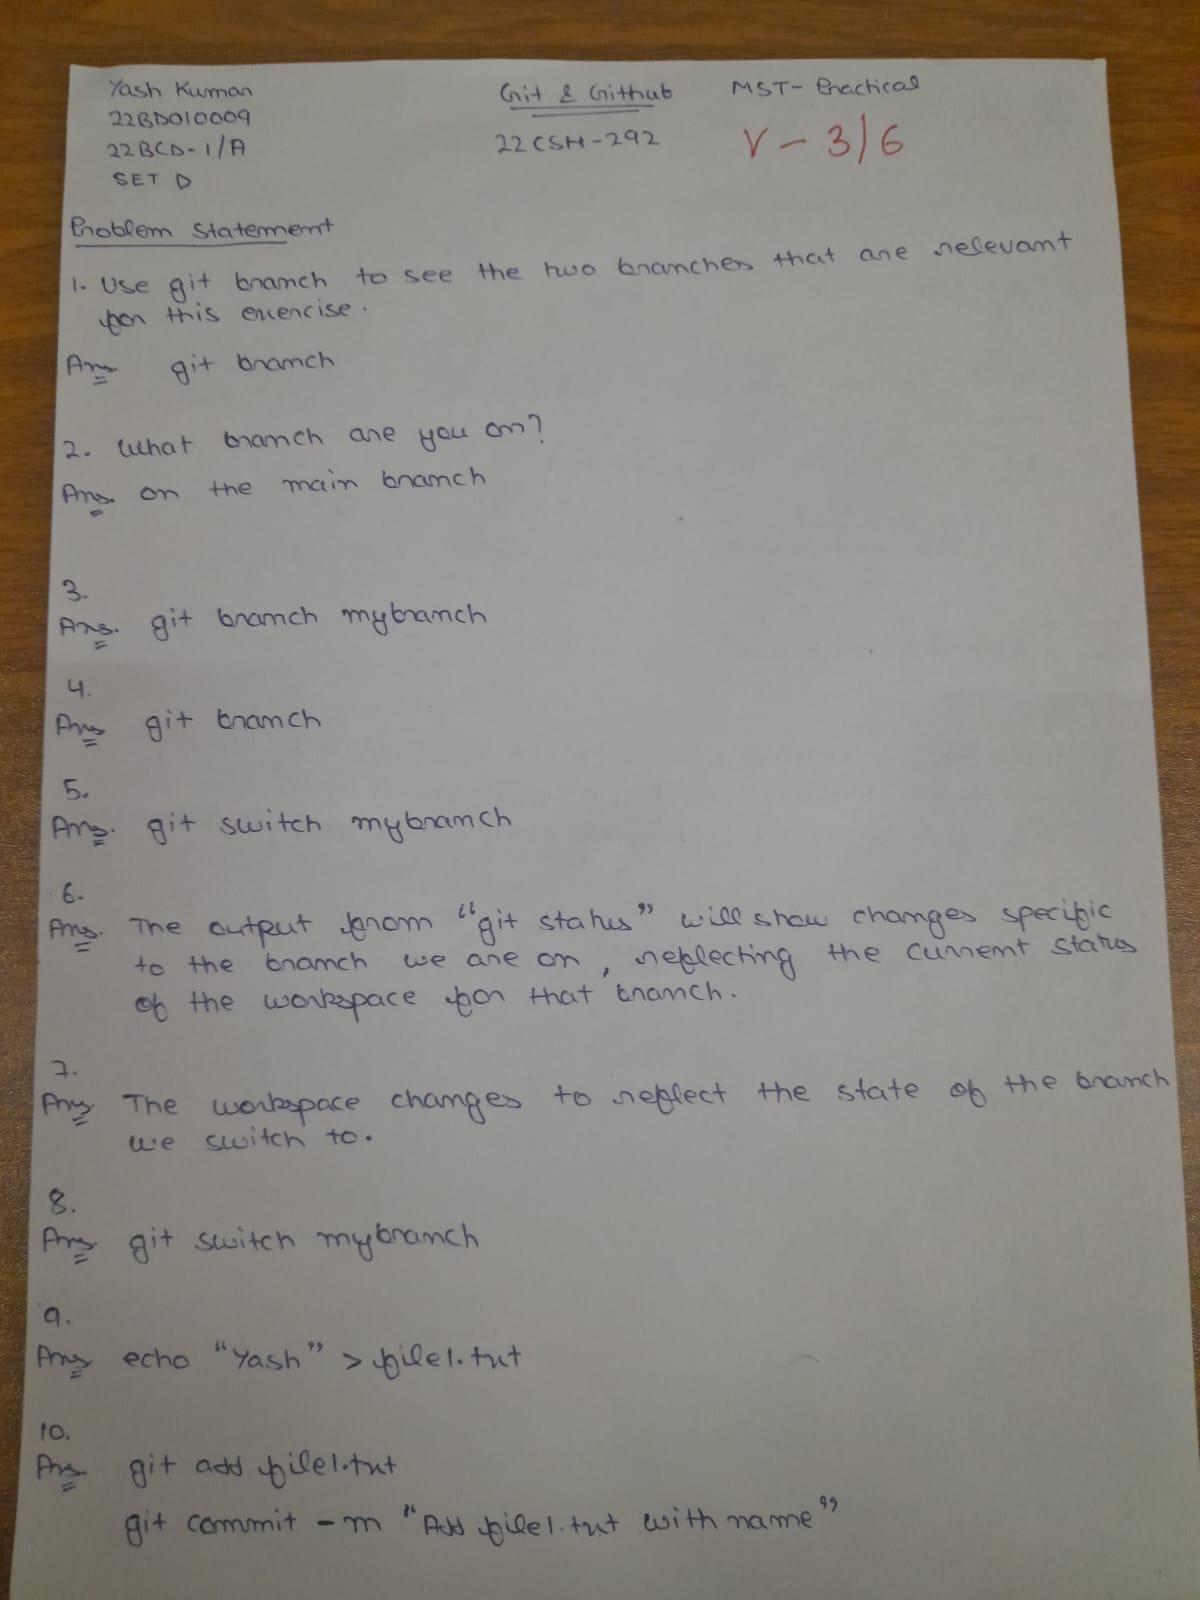 Yash Kumar
22BDO10009
22BCD-1/A
SET D
Git & Github
22CSH-292
MST- Practical
V - 3/6
Problem Statement
1. Use git branch to see the two branches that are relevant
for this exercise.
Ans git branch
2. What branch are you on?
Ans. on the main branch
3.
Ans. git branch mybranch
4.
Ans git branch
5.
Ans. git switch mybranch
6.
Ans. The output from "git status" will show changes specific
to the branch we are on, reflecting the current status
of the workspace for that branch.
7.
Ans The workspace changes to reflect the state of the branch
we switch to.
8.
Ans git switch mybranch
9.
Ans echo "Yash" > file1.txt
10.
Ans. git add file1.txt
git commit -m "Add file1.txt with name"